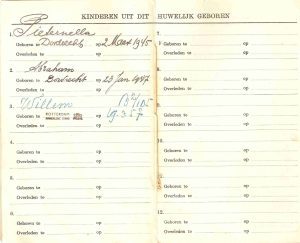 KINDEREN UIT DIT HUWELIJK GEBOREN
1. Pieternella
Geboren te Dordrecht op 2 Maart 1945
Overleden te op
2. Abraham
Geboren te Dordrecht op 23 Jan 1947
Overleden te op
3. Willem
Geboren te ROTTERDAM op
Overleden te op
4.
Geboren te op
Overleden te op
5.
Geboren te op
Overleden te op
6.
Geboren te op
Overleden te op
7.
Geboren te op
Overleden te op
8.
Geboren te op
Overleden te op
9.
Geboren te op
Overleden te op
10.
Geboren te op
Overleden te op
11.
Geboren te op
Overleden te op
12.
Geboren te op
Overleden te op